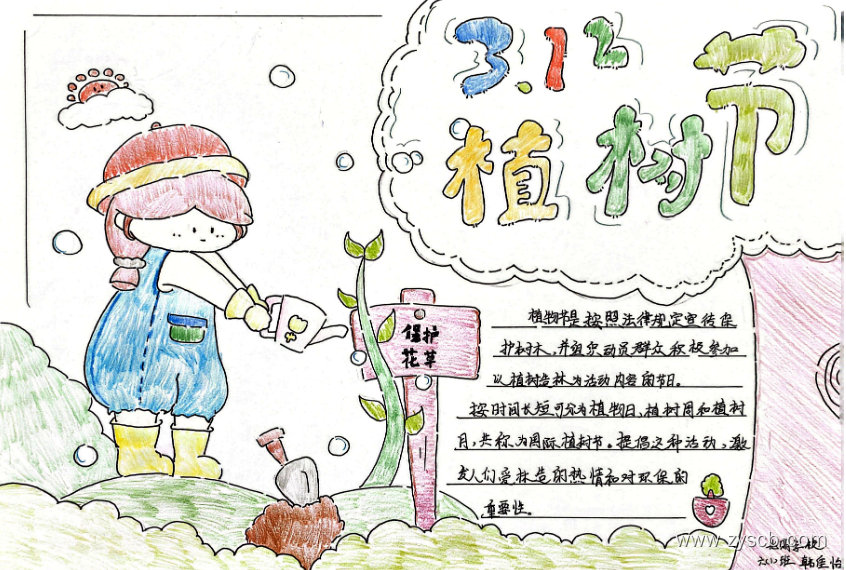 3.12
植树节
保护
花草
植物节是按照法律规定宣传保
护树木,并组织动员群众积极参加
以植树造林为活动内容的节日。
按时间长短可分为植物日、植树周和植树
月,共称为国际植树节。提倡这种活动,激
发人们爱林造的热情和对环保的
重要性。
www.zyscb.com
六(1)班 韩佳怡